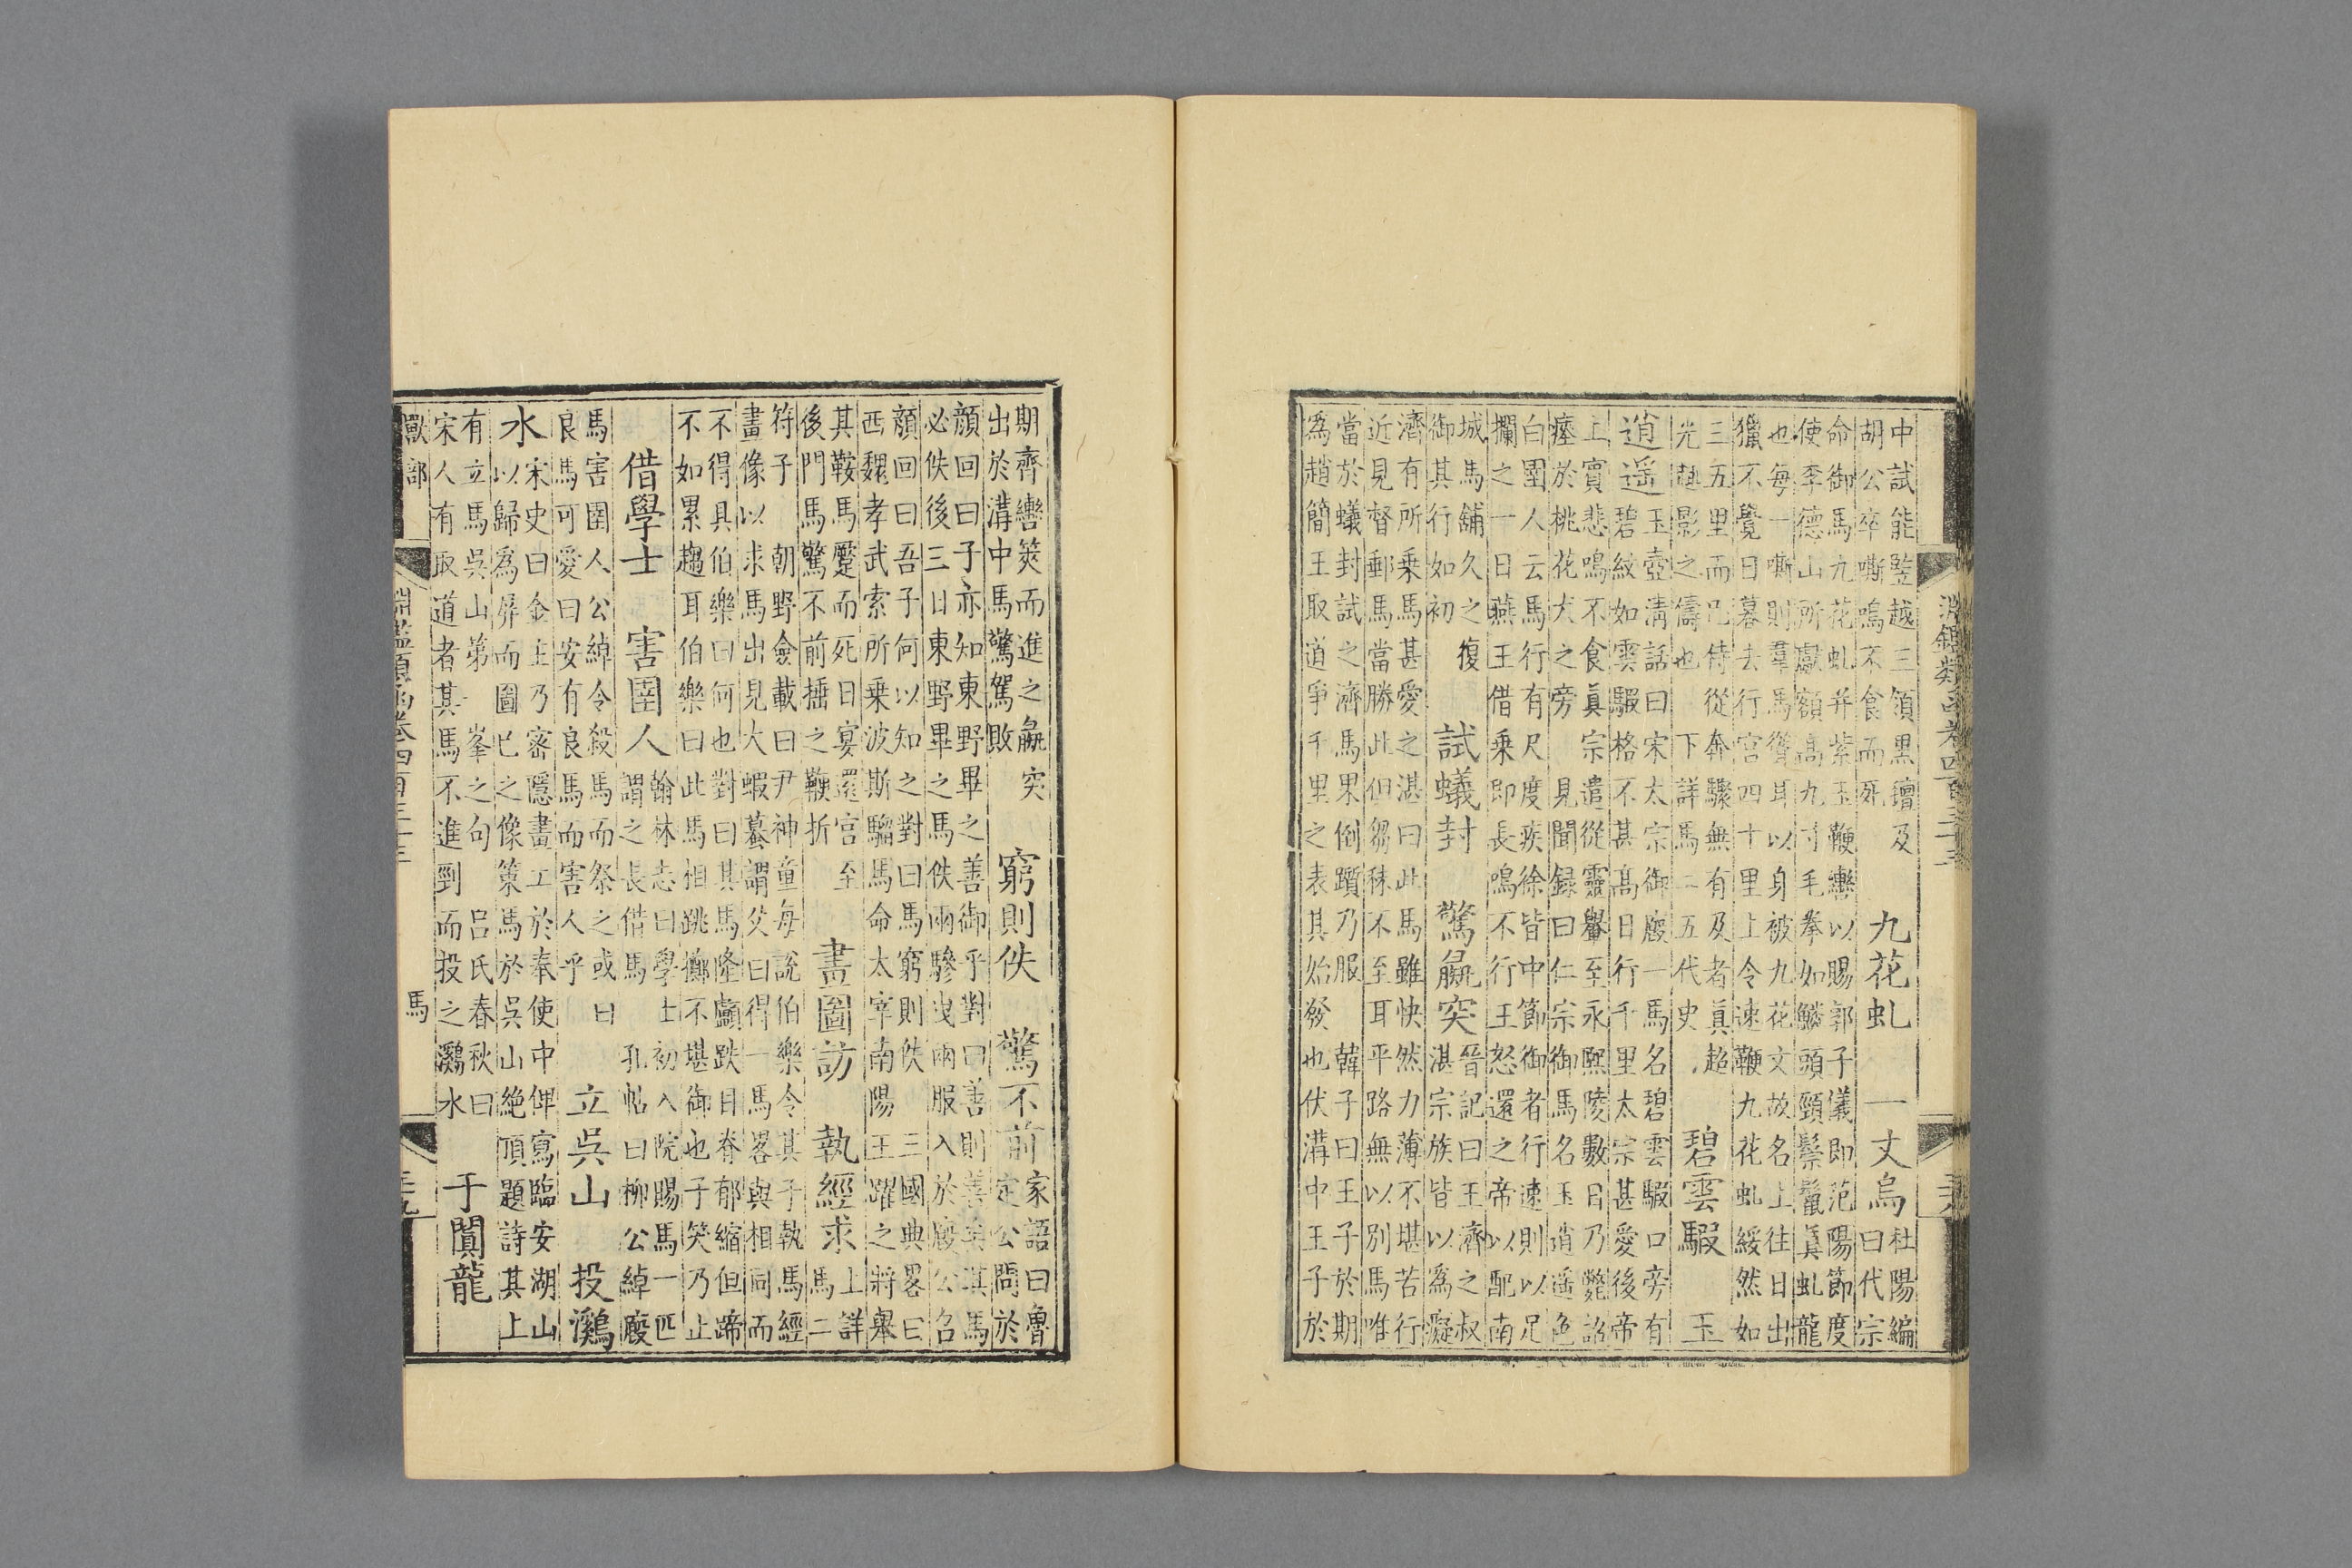 淵鑑類函卷四百三十三
中試能豎越三領黑氊及
胡公卒嘶鳴不食而死
九花虬 一丈烏
杜陽編
曰代宗
命御馬九花虬并紫玉鞭轡以賜郭子儀即范陽節度
使李德山所獻額高九寸毛拳如鱗頭頸鬃鬣真虬龍
也每一嘶則羣馬聳耳以身被九花文故名上往日出
獵不覺日暮去行宮四十里上令速鞭九花虬緩然如
三五里而已侍從奔驟無有及者真超
光趂影之儔也 下詳馬二 五代史
碧雲騢 玉
逍遥
玉壺清話曰宋太宗御廐一馬名碧雲騢口旁有
碧紋如雲騢格不甚髙日行千里太宗甚愛後帝
上賓悲鳴不食真宗遣從靈轝至永熈陵數日乃斃詔
瘞於桃花犬之旁 見聞録曰仁宗御馬名玉逍遥色
白圉人云馬行有尺度疾徐皆中節御者行速則以足
攔之一日燕王借乗即長鳴不行王怒還之帝以配南
城馬鋪久之復
御其行如初
試蟻封 驚羸突
晉記曰王濟之叔
湛宗族皆以為癡
濟有所乗馬甚愛之湛曰此馬雖快然力薄不堪苦行
近見督郵馬當勝此但芻秣不至耳平路無以別馬唯
當於蟻封試之濟馬果倒躓乃服 韓子曰王子於期
為趙簡王取道爭千里之表其始發也伏溝中王子於
期齊轡筴而進之羸突
出於溝中馬驚駕敗
窮則佚 驚不前
家語曰魯
定公問於
顏回曰子亦知東野畢之善御乎對曰善則善矣其馬
必佚後三日東野畢之馬佚兩驂曳兩服入於廐公召
顏回曰吾子何以知之對曰馬窮則佚 三國典畧曰
西魏孝武索所乗波斯騮馬命太宰南陽王躍之將舉
其鞍馬蹷而死日宴還宫至
後門馬驚不前捶之鞭折
畫圖訪 執經求
上詳
馬二
符子 朝野僉載曰尹神童每説伯樂令其子執馬經
畫像以求馬出見大蝦蟇謂父曰得一馬畧與相同而
不得具伯樂曰何也對曰其馬隆顱跌目脊郁縮但蹄
不如累趨耳伯樂曰此馬相跳擲不堪御也子笑乃止
借學士 害圉人
翰林志曰學士初入院賜馬一匹
謂之長借馬 孔帖曰柳公綽廐
馬害圉人公綽令殺馬而祭之或曰
良馬可愛曰安有良馬而害人乎
立吳山 投鸂
水
宋史曰金主乃密隱畫工於奉使中俾寫臨安湖山
以歸爲屏而圖己之像策馬於吳山絶頂題詩其上
有立馬吳山第一峯之句 吕氏春秋曰
宋人有取道者其馬不進剄而投之鸂水
于闐龍
獸部 淵鑑類函卷四百三十三 馬 三十九